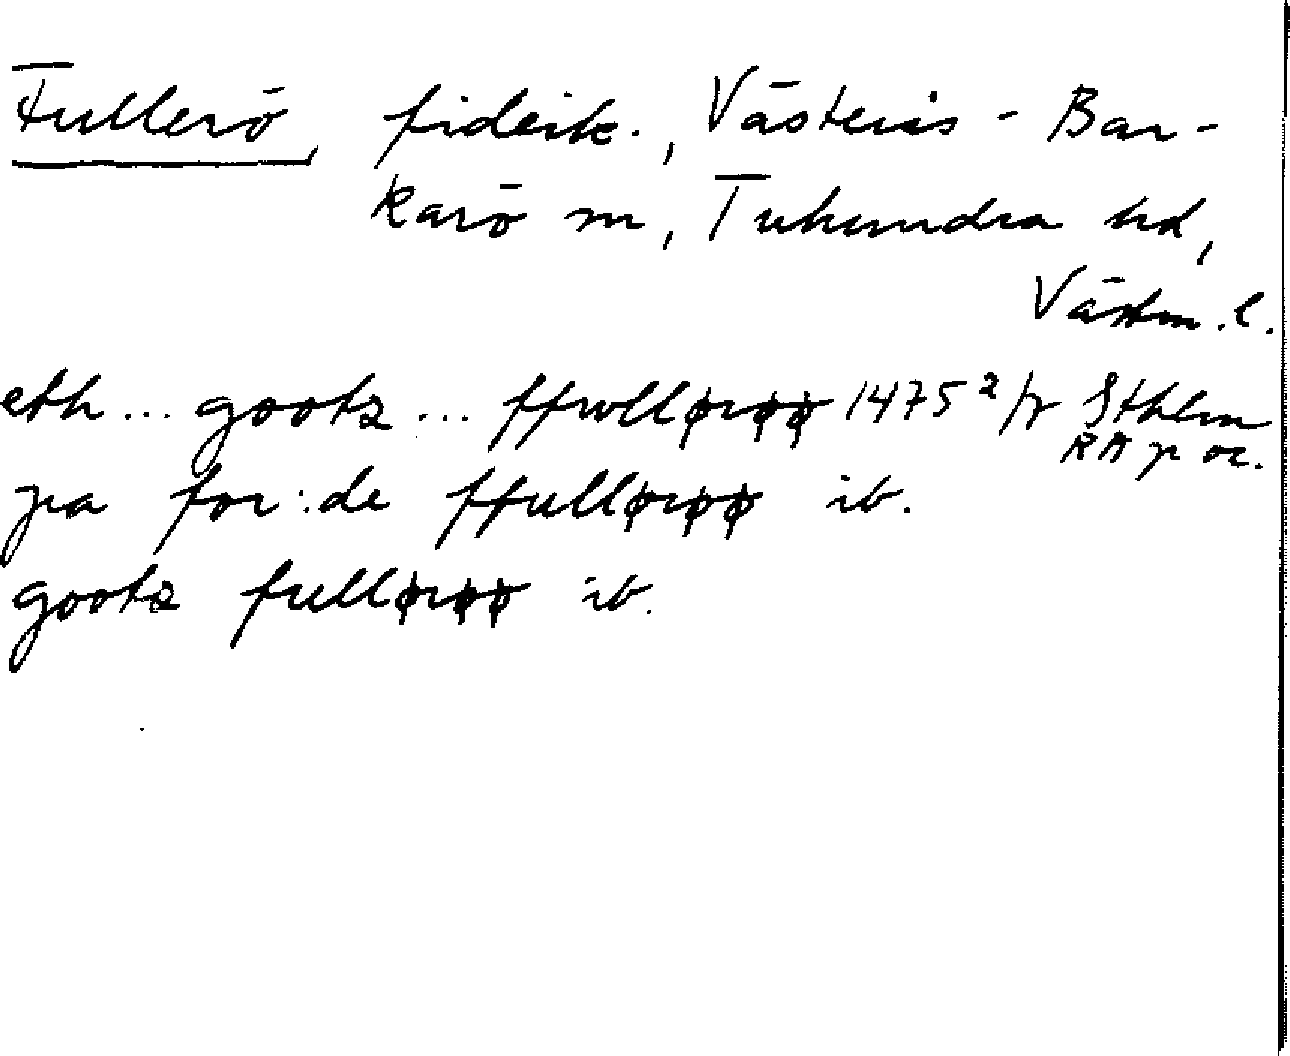 Fullerö, fideik., Västerås - Bar-
karö sn, Tuhundra hd,
Västm. l.
eth ... gootz ... ffwlløröø 1475 2/5 Sthlm
RA p or.
pa for:de ffulløröø ib.
gootz fulløröø ib.